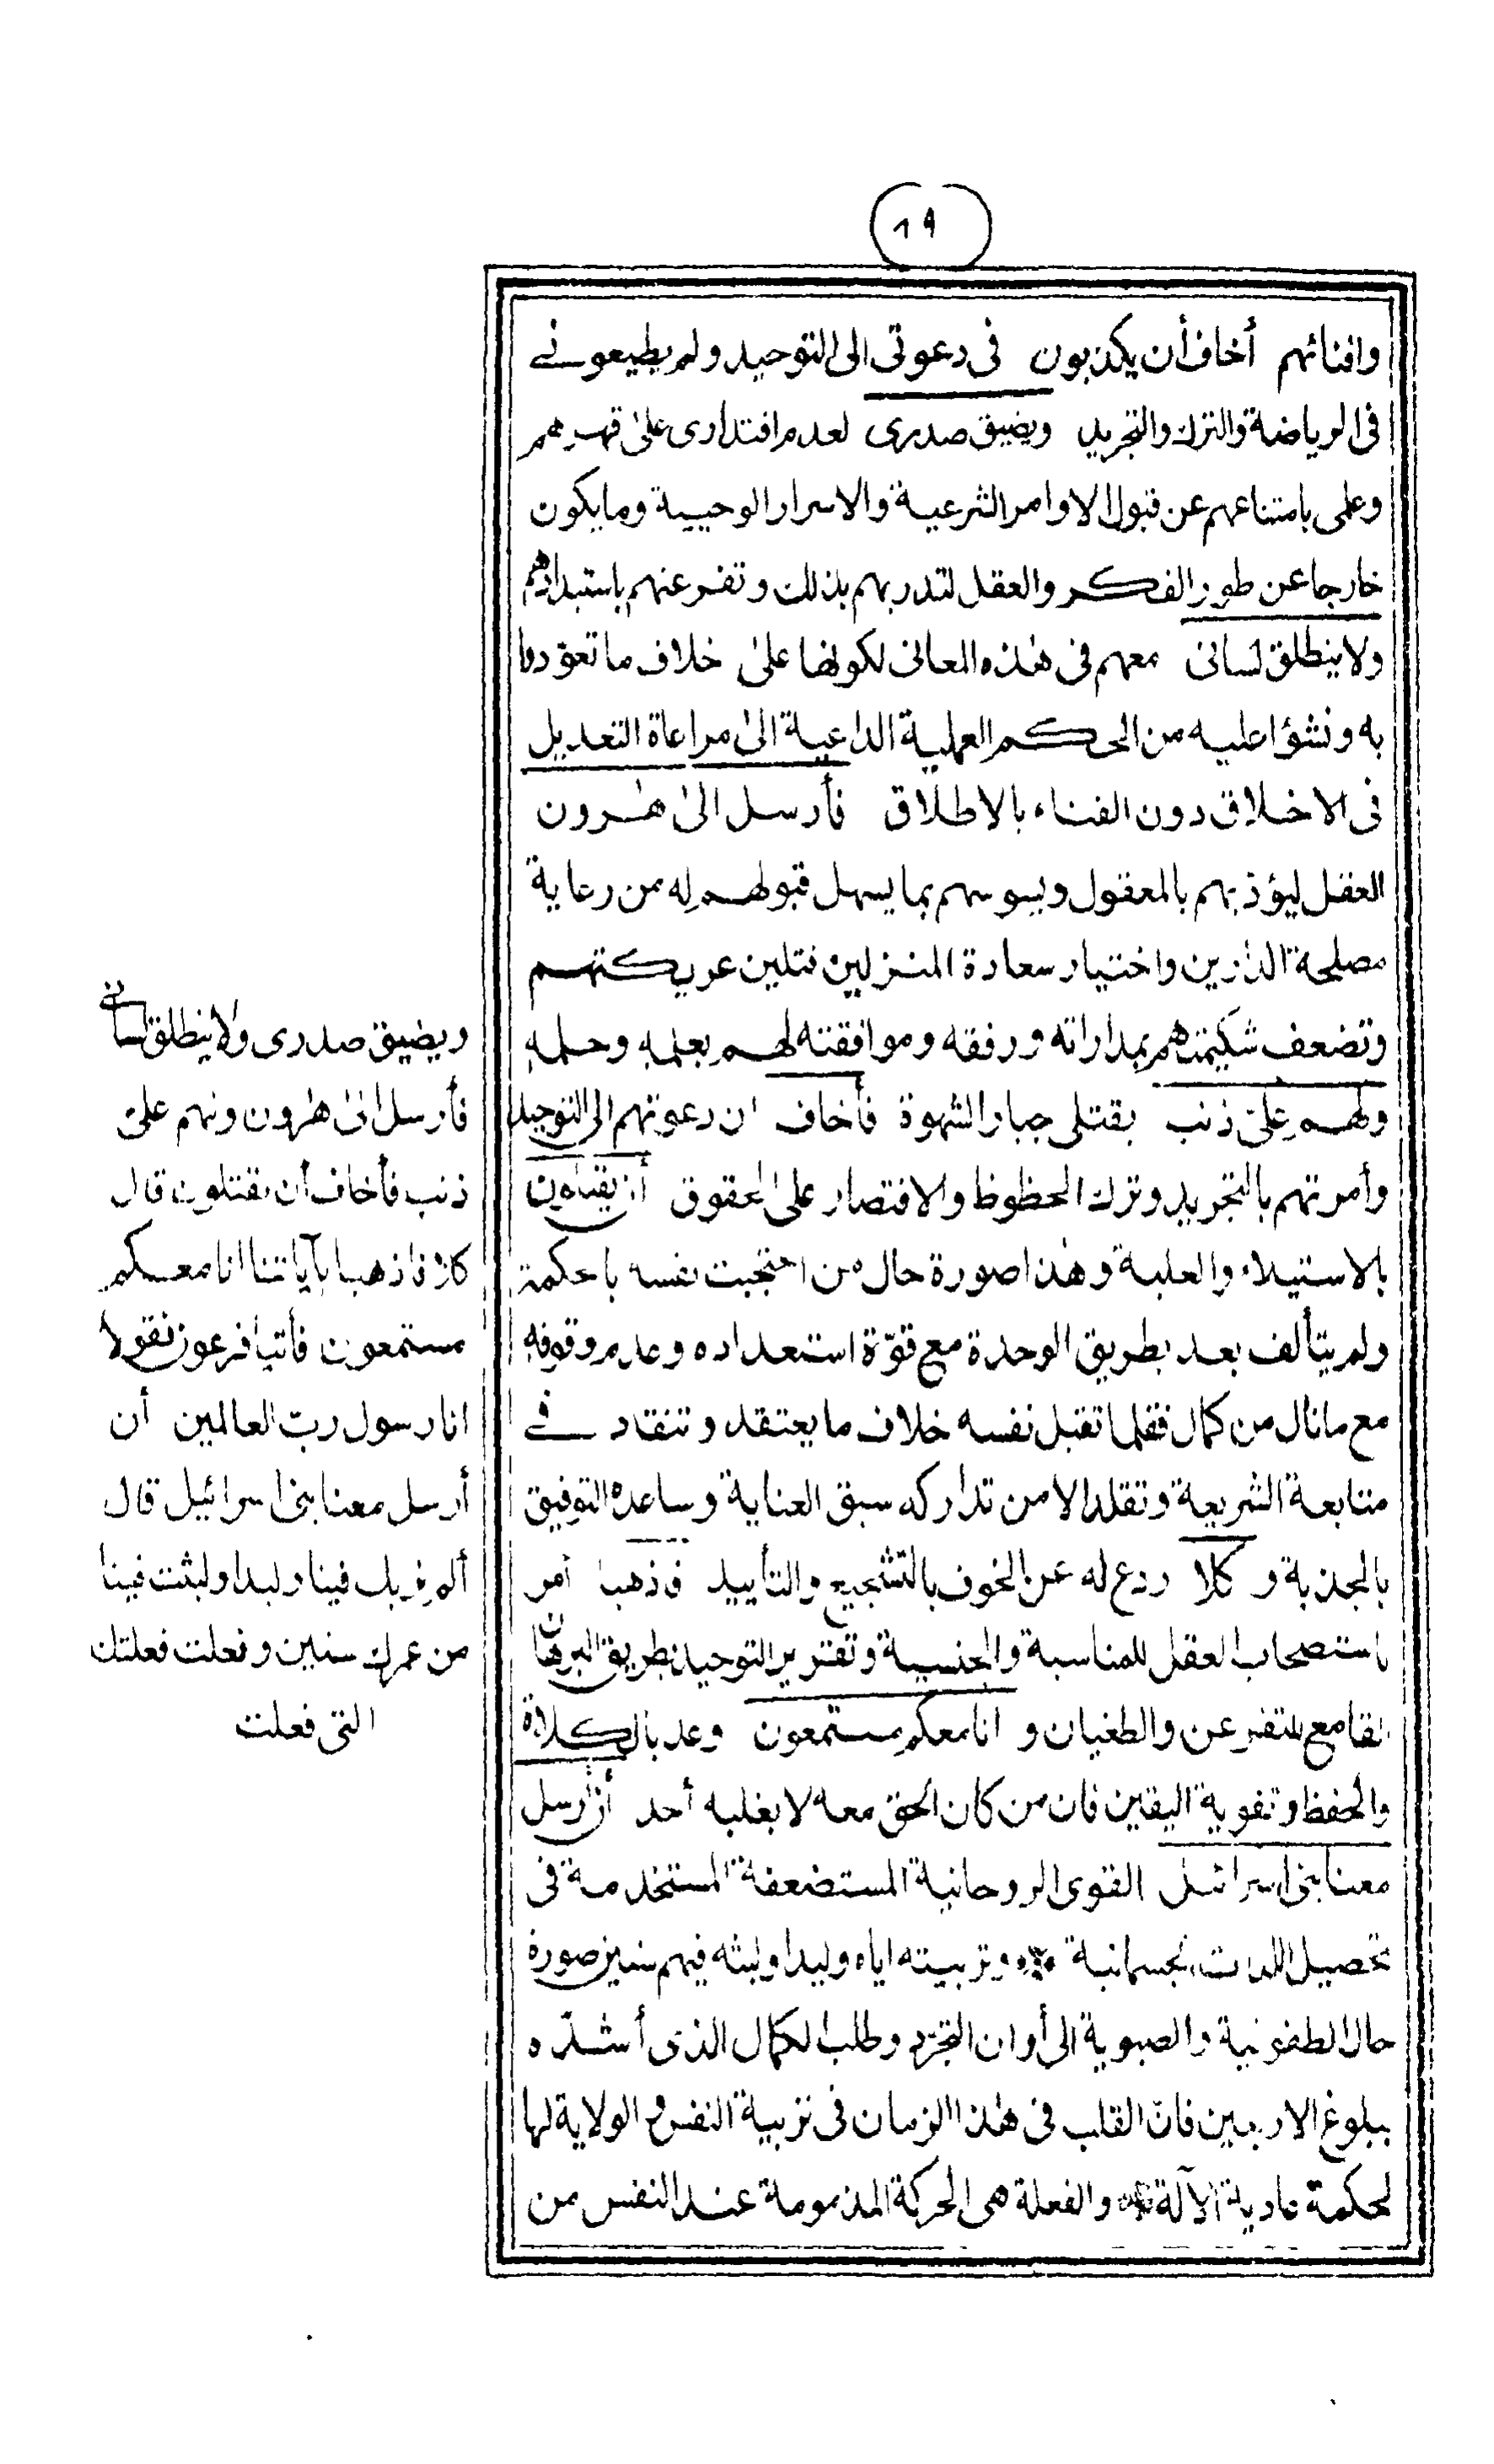 ١٩
وافنائهم أخاف أن يكذبون فى دعوتى الى التوحيد ولم يطيعونى
فى الرياضة والترك والتجريد ويضيق صدرى لعدم اقتدارى على قهرهم
وعلمى بامتناعهم عن قبول الاوامر الشرعية والاسرار الوحيية وما يكون
خارجا عن طور الفكر والعقل لتدربهم بذلك وتفرعنهم باستبدادهم
ولا ينطلق لسانى معهم فى هذه المعانى لكونها على خلاف ما تعودوا
به ونشؤا عليه من الحكم العملية الداعية الى مراعاة التعديل
فى الاخلاق دون الفناء بالاطلاق فأرسل الى هرون
العقل ليؤدبهم بالمعقول ويسوسهم بما يسهل قبولهم له من رعاية
مصلحة الدارين واختيار سعادة المنزلين فتلين عريكتهم
وتضعف شكيمتهم بمداراته ورفقه وموافقته لهم بعلمه وحلمه
ولهم علىّ ذنب بقتلى جبار الشهوة فأخاف ان دعوتهم الى التوحيد
وأمرتهم بالتجريد وترك الحظوظ والاقتصار على الحقوق أن يقتلون
بالاستيلاء والغلبة وهذا صورة حال من احتجبت نفسه بالحكمة
ولم يتألف بعد بطريق الوحدة مع قوّة استعداده وعدم وقوفه
مع ما نال من كمال فقلما تقبل نفسه خلاف ما يعتقد وتنقاد فى
متابعة الشريعة وتقلد الا من تداركه سبق العناية وساعده التوفيق
بالجذبة و كلا ردع له عن الخوف بالتشجيع والتأييد فاذهبا أمر
باستصحاب العقل للمناسبة والجنسية وتقرير التوحيد بطريق البرهان
القامع للتفرعن والطغيان و انا معكم مستمعون وعد بالكلاءة
والحفظ وتقوية اليقين فان من كان الحق معه لا يغلبه أحد أن أرسل
معنا بنى اسرائيل القوى الروحانية المستضعفة المستخدمة فى
تحصيل اللذات الجسمانية وتربيته اياه وليدا ولبثه فيهم سنين صورة
حال الطفولية والصبوية الى أوان التجرّد وطلب الكمال الذى أشدّه
ببلوغ الاربعين فانّ القلب فى هذا الزمان فى تربية النفس والولاية لها
لحكمة تأدية الآلة والفعلة هى الحركة المذمومة عند النفس من
ويضيق صدرى ولا ينطلق لسانى
فأرسل الى هرون ولهم علىّ
ذنب فأخاف أن يقتلون قال
كلا فاذهبا بآياتنا انا معكم
مستمعون فأتيا فرعون فقولا
انا رسول ربّ العالمين أن
أرسل معنا بنى اسرائيل قال
ألم نربك فينا وليدا ولبثت فينا
من عمرك سنين وفعلت فعلتك
التى فعلت